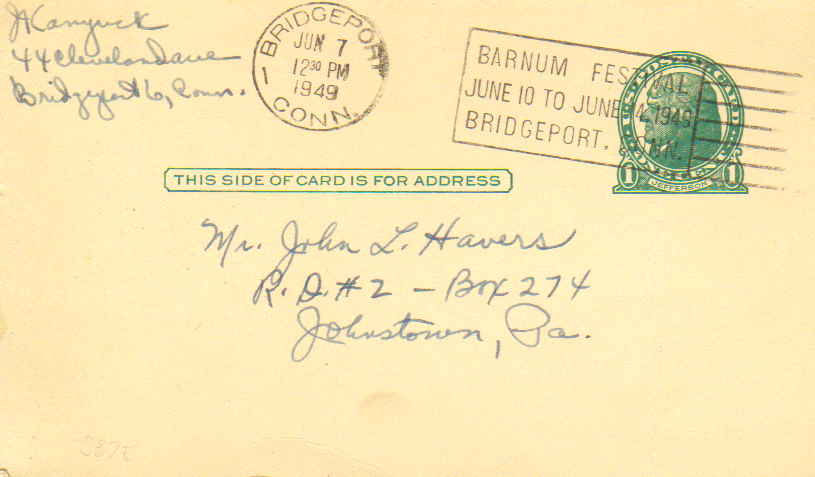 44 Cleveland Ave
Bridgeport 6, Conn.
BRIDGEPORT
JUN 7
12 30 PM
1949
1
CONN.
BARNUM FESTIVAL
JUNE 10 TO JUNE 14, 1949
BRIDGEPORT, CONN.
1 JEFFERSON 1
THIS SIDE OF CARD IS FOR ADDRESS
Mr. John L. Havers
R. D. #2 – Box 274
Johnstown, Pa.